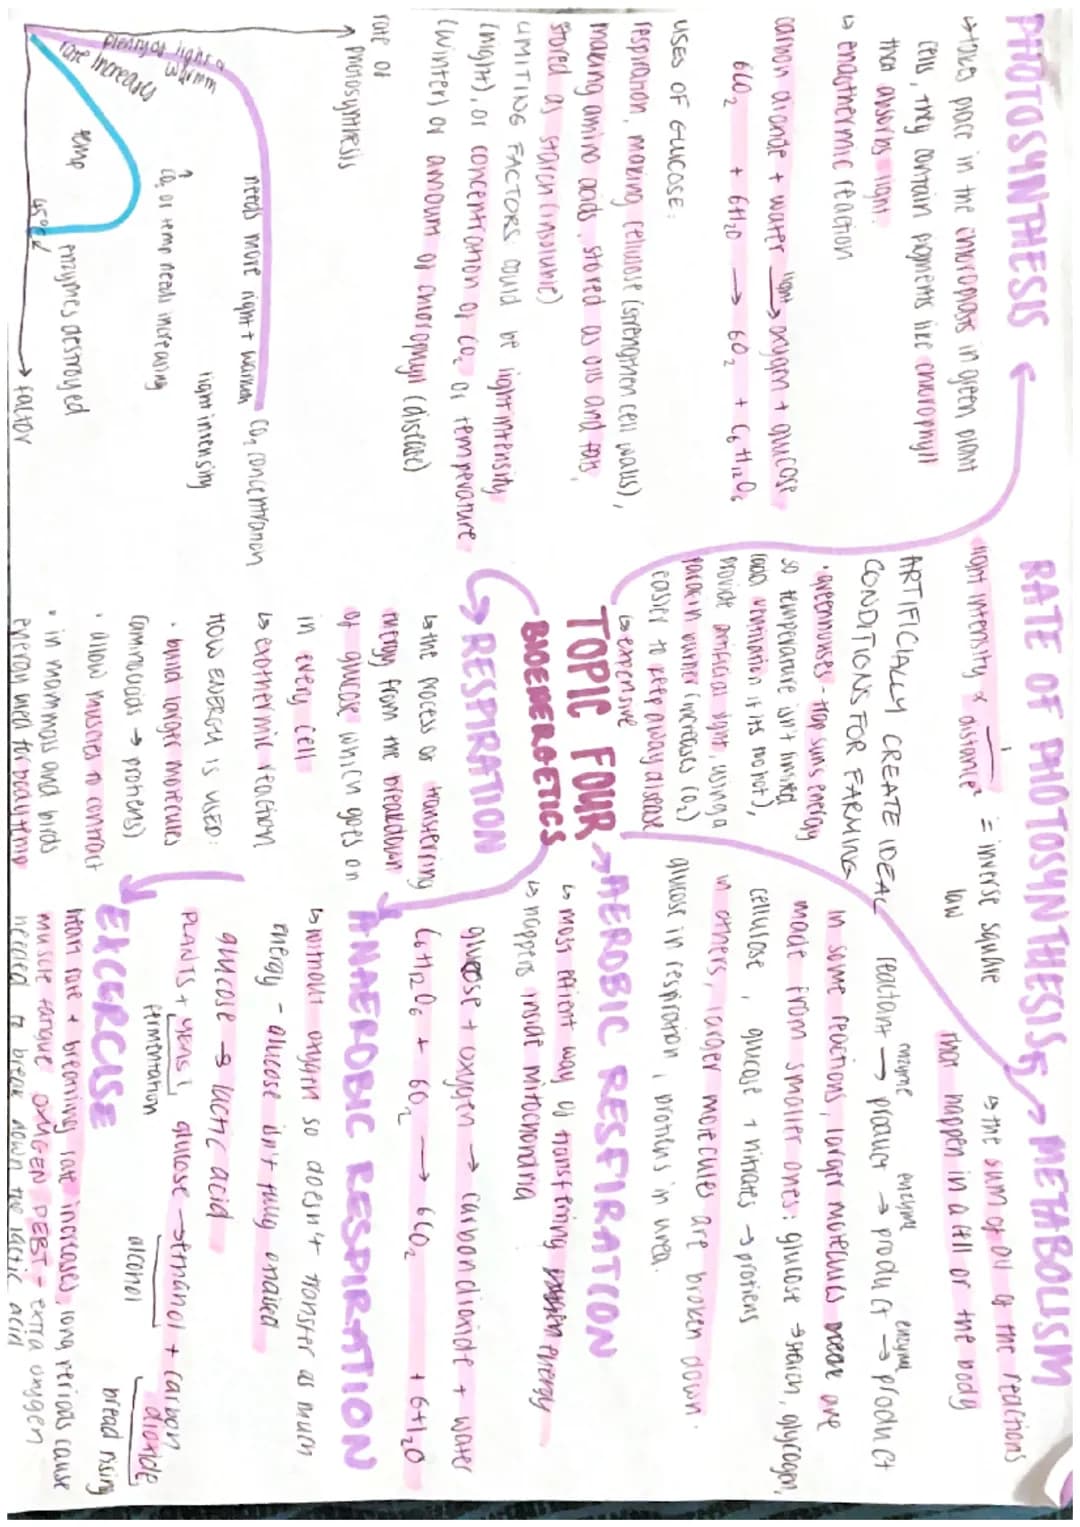 PHOTOSYNTHESIS
↳ takes place in the chloroplasts in green plant
cells, they contain pigments like chlorophyll
that absorbs light.
↳ endothermic reaction
carbon dioxide + water light → oxygen + glucose
6CO₂ + 6H₂O → 6O₂ + C₆H₁₂O₆
USES OF GLUCOSE:
respiration, making cellulose (strengthen cell walls),
making amino acids, stored as oils and fats,
stored as starch (insoluble)
LIMITING FACTORS: could be light intensity
(night), or concentration of CO₂ or temperature
(winter) or amount of chlorophyll (disease)
rate of
photosynthesis
plenty of light &
warmth
rate increases
needs more light + warmth
CO₂ concentration
light intensity
CO₂ or temp needs increasing
temp
45°C
enzymes destroyed
→ factor
RATE OF PHOTOSYNTHESIS
light intensity ∝ 1 / distance² = inverse square
law
ARTIFICIALLY CREATE IDEAL
CONDITIONS FOR FARMING
· greenhouses - trap suns energy
so temperature isn't limited
(add ventilation if its too hot),
provide artificial light, using a
paraffin burner (increases CO₂)
easier to keep away disease
↳ expensive
TOPIC FOUR
BIOENERGETICS
RESPIRATION
↳ the process of transferring
energy from the breakdown
of glucose which goes on
in every cell
↳ exothermic reaction
HOW ENERGY IS USED:
· build larger molecules
(amino acids → protiens)
· allow muscles to contract
· in mammals and birds
energy used for body temp
METABOLISM
↳ the sum of all of the reactions
that happen in a cell or the body
reactant enzyme → product enzyme → product enzyme → product
in some reactions, larger molecules are
made from smaller ones: glucose → starch, glycogen,
cellulose, glucose + nitrates → protiens
in others, larger molecules are broken down.
glucose in respiration, protiens in urea.
AEROBIC RESPIRATION
↳ most efficient way of transfering energy
↳ happens inside mitochondria
glucose + oxygen → carbon dioxide + water
C₆H₁₂O₆ + 6O₂ → 6CO₂ + 6H₂O
ANAEROBIC RESPIRATION
↳ without oxygen so doesn't transfer as much
energy - glucose isn't fully oxidised
glucose → lactic acid
PLANTS + YEAST glucose → ethanol + carbon
dioxide
fermentation
alcohol
bread rising
EXCERCISE
heart rate + breathing rate increases, long periods cause
muscle fatigue OXYGEN DEBT - extra oxygen
needed to break down the lactic acid